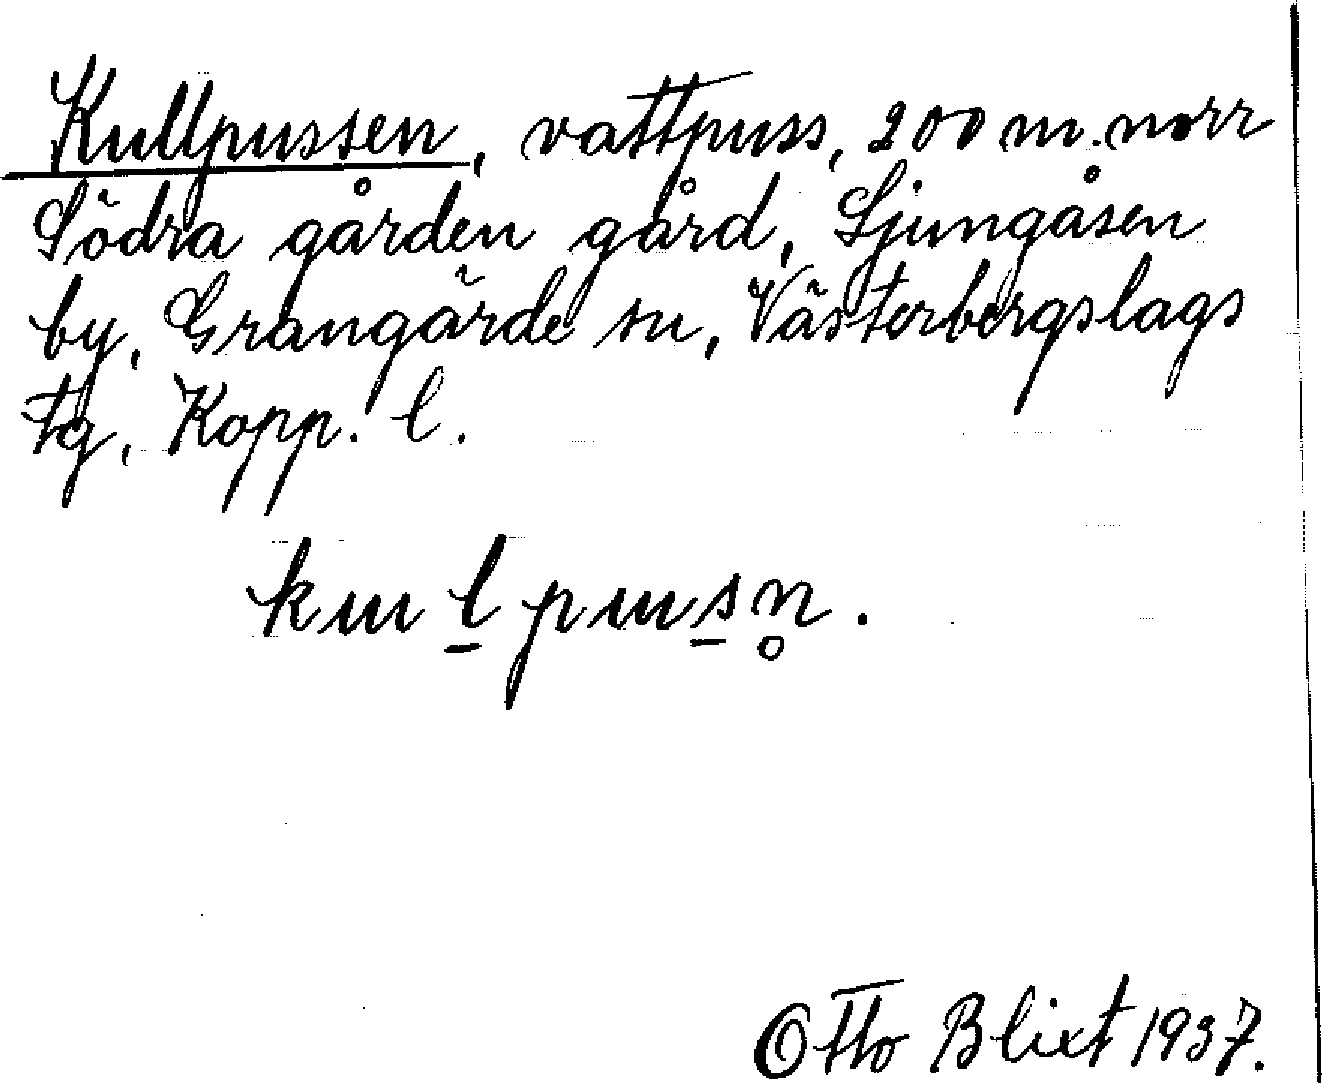 Kullpussen, vattpuss, 200 m. norr
Södra gården gård, Ljungåsen
by, Grangärde sn, Västerbergslags
tg, Kopp. l.
kul̲pus̲n̥.
Otto Blixt 1937.